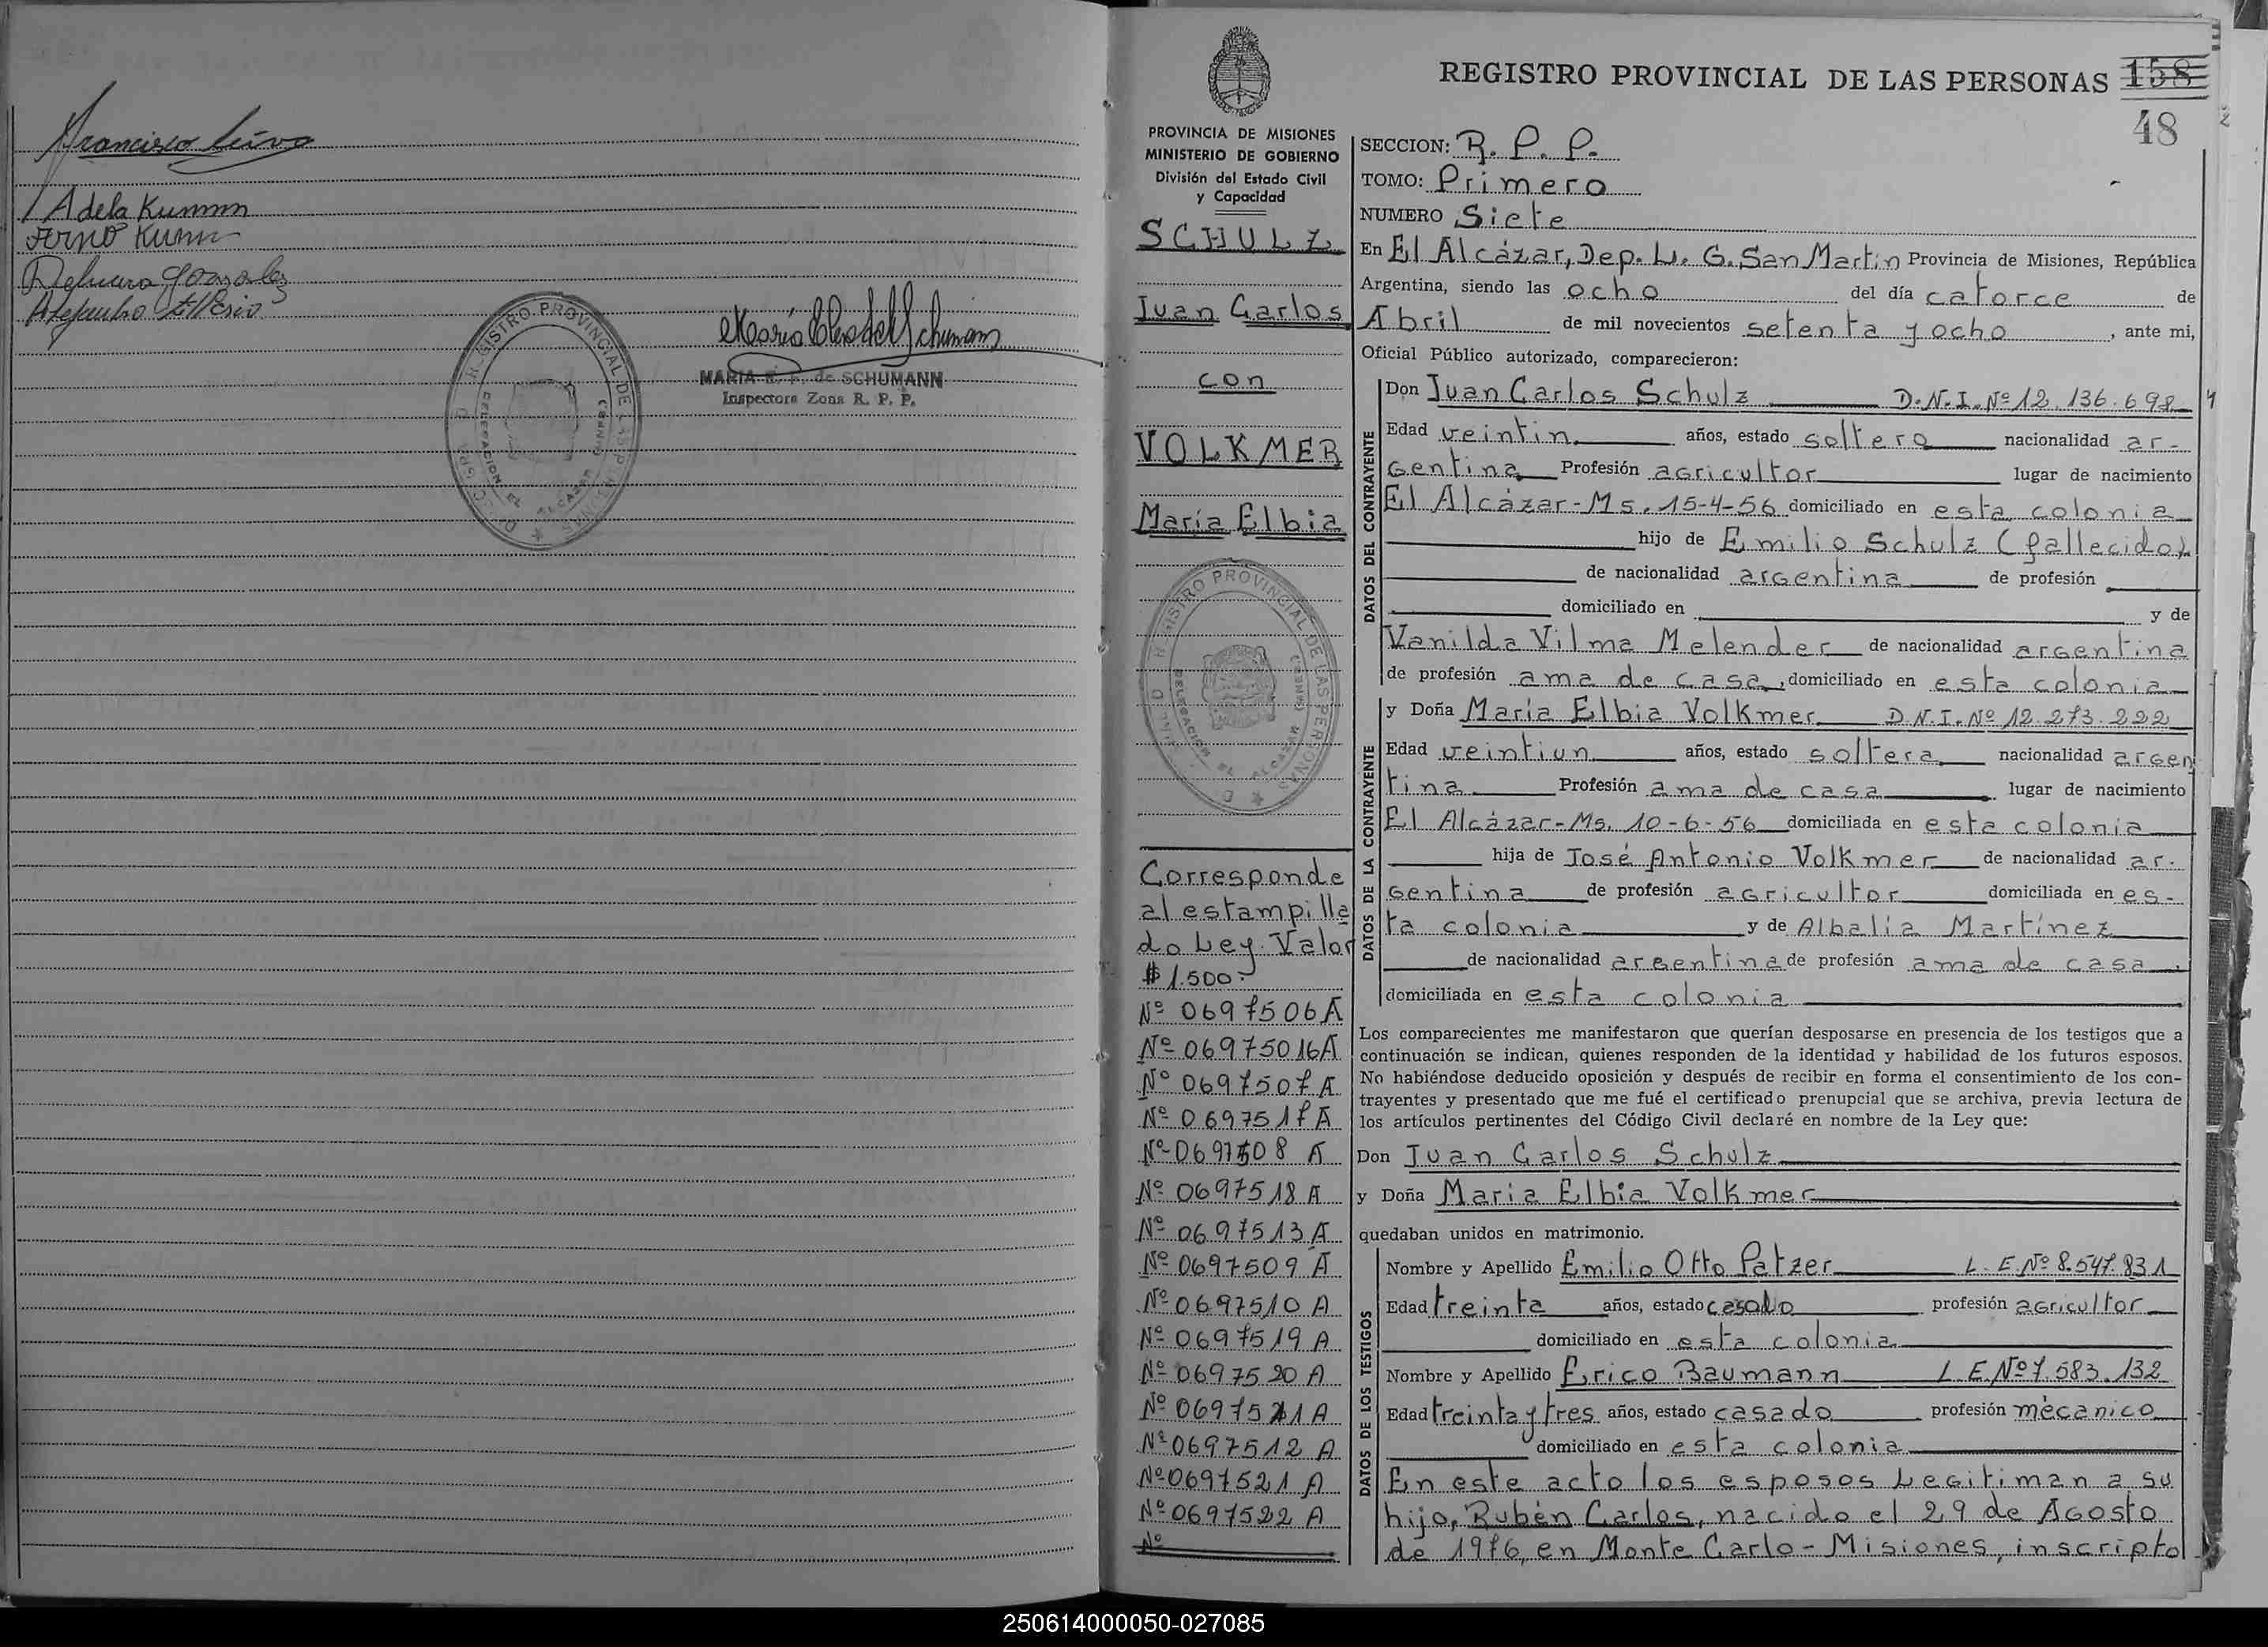 Francisco Leiva
Adela Kumm
Arno Kumm
Gonzalez
Alejandro
MARIA E. F. de SCHUMANN
Inspectora Zona R. P. P.
REGISTRO PROVINCIAL DE LAS PERSONAS
DELEGACION EL ALCAZAR
REGISTRO PROVINCIAL DE LAS PERSONAS 158
48
PROVINCIA DE MISIONES
MINISTERIO DE GOBIERNO
División del Estado Civil
y Capacidad
SCHULZ
Juan Carlos
con
VOLKMER
María Elbia
REGISTRO PROVINCIAL DE LAS PERSONAS
DELEGACION EL ALCAZAR
Corresponde
al estampilla
do Ley. Valor
$ 1.500-
Nº 0697506 A
Nº 06975016 A
Nº 0697507 A
Nº 0697517 A
Nº 0697508 A
Nº 0697518 A
Nº 0697513 A
Nº 0697509 A
Nº 0697510 A
Nº 0697519 A
Nº 0697520 A
Nº 0697512 A
Nº 0697521 A
Nº 0697522 A
Nº
SECCION: R. P. P.
TOMO: Primero
NUMERO Siete
En El Alcázar, Dep. L. G. San Martín Provincia de Misiones, República
Argentina, siendo las ocho del día catorce de
Abril de mil novecientos setenta y ocho, ante mi,
Oficial Público autorizado, comparecieron:
DATOS DEL CONTRAYENTE
Don Juan Carlos Schulz D.N.I. Nº 12.136.698
Edad veintin años, estado soltero nacionalidad ar-
gentina Profesión agricultor lugar de nacimiento
El Alcázar-Ms. 15-4-56 domiciliado en esta colonia
hijo de Emilio Schulz (fallecido)
de nacionalidad argentina de profesión
domiciliado en y de
Vanilda Vilma Melender de nacionalidad argentina
de profesión ama de casa, domiciliado en esta colonia
DATOS DE LA CONTRAYENTE
y Doña María Elbia Volkmer D.N.I. Nº 12.273.222
Edad veintiun años, estado soltera nacionalidad argen
tina Profesión ama de casa lugar de nacimiento
El Alcázar-Ms. 10-6-56 domiciliada en esta colonia
hija de José Antonio Volkmer de nacionalidad ar-
gentina de profesión agricultor domiciliada en es-
ta colonia y de Albalía Martínez
de nacionalidad argentina de profesión ama de casa,
domiciliada en esta colonia
Los comparecientes me manifestaron que querían desposarse en presencia de los testigos que a
continuación se indican, quienes responden de la identidad y habilidad de los futuros esposos.
No habiéndose deducido oposición y después de recibir en forma el consentimiento de los con-
trayentes y presentado que me fué el certificado prenupcial que se archiva, previa lectura de
los artículos pertinentes del Código Civil declaré en nombre de la Ley que:
Don Juan Carlos Schulz
y Doña Maria Elbia Volkmer
quedaban unidos en matrimonio.
DATOS DE LOS TESTIGOS
Nombre y Apellido Emilio Otto Patzer L. E. Nº 8.547.831
Edad treinta años, estado casado profesión agricultor
domiciliado en esta colonia
Nombre y Apellido Erico Baumann L. E. Nº 7.583.132
Edad treinta y tres años, estado casado profesión mécanico
domiciliado en esta colonia
En este acto los esposos Legitiman a su
hijo, Rubén Carlos, nacido el 29 de Agosto
de 1976, en Monte Carlo - Misiones, inscripto
250614000050-027085